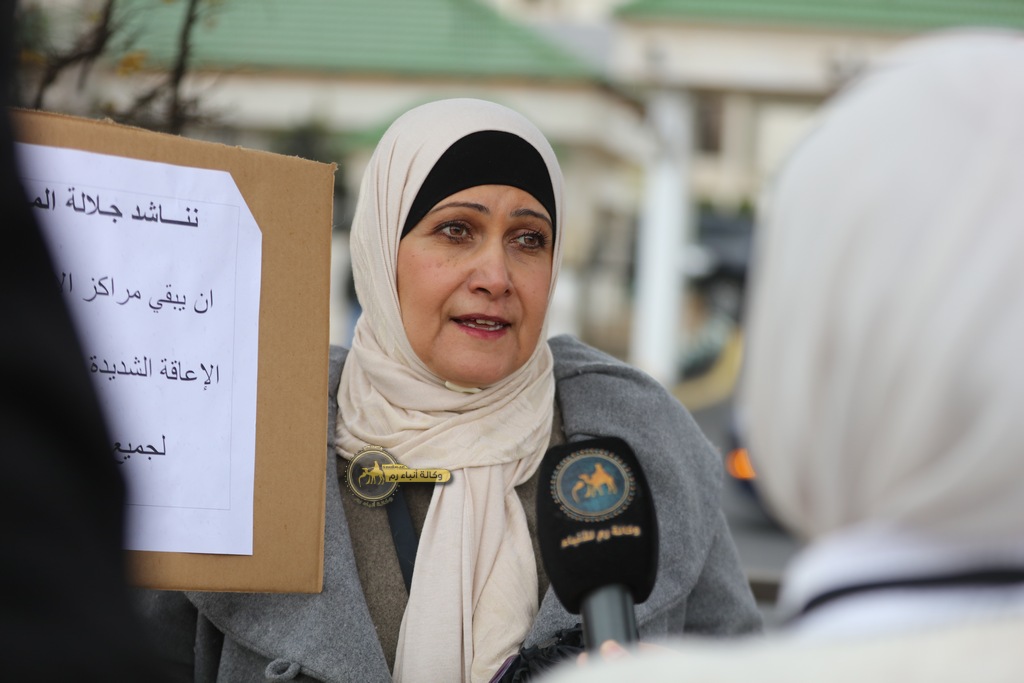 ننـــاشد جلالة
ان يبقي مراكز
الإعاقة الشديدة
لجميع
وكالة أنباء رم
وكالة رم للأنباء